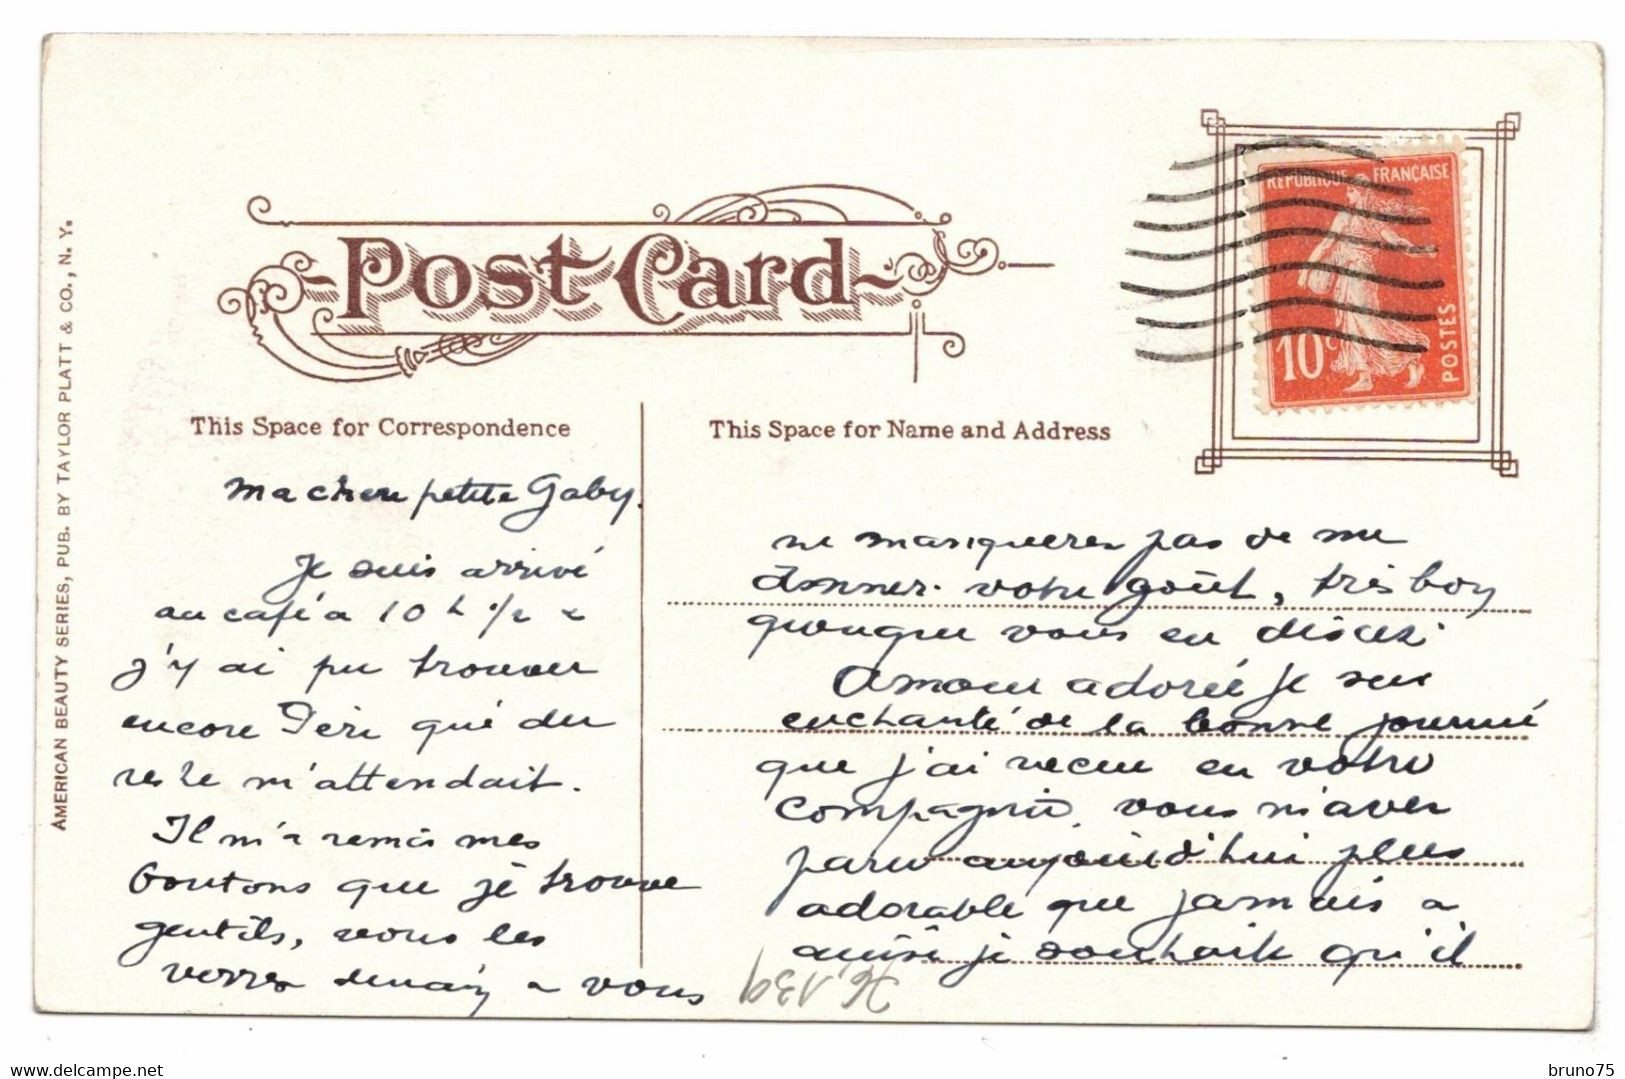 AMERICAN BEAUTY SERIES, PUB. BY TAYLOR PLATT & CO., N. Y.
Post Card
REPUBLIQUE FRANÇAISE
10c
POSTES
This Space for Correspondence
This Space for Name and Address
ma chere petite Gaby.
Je suis arrivé
au café a 10 h 1/2 &
j'y ai pu trouver
encore Péri qui du
reste m'attendait.
Il m'a remis mes
boutons que je trouve
gentils, vous les
verrez demain & vous
ne manquerez pas de me
donner votre goût, très bon
quoique vous en disiez.
Amour adorée je suis
enchanté de la bonne journée
que j'ai vecue en votre
compagnie, vous m'avez
paru aujourd'hui plus
adorable que jamais &
aussi je souhaite qu'il
H. 139
www.delcampe.net
bruno75